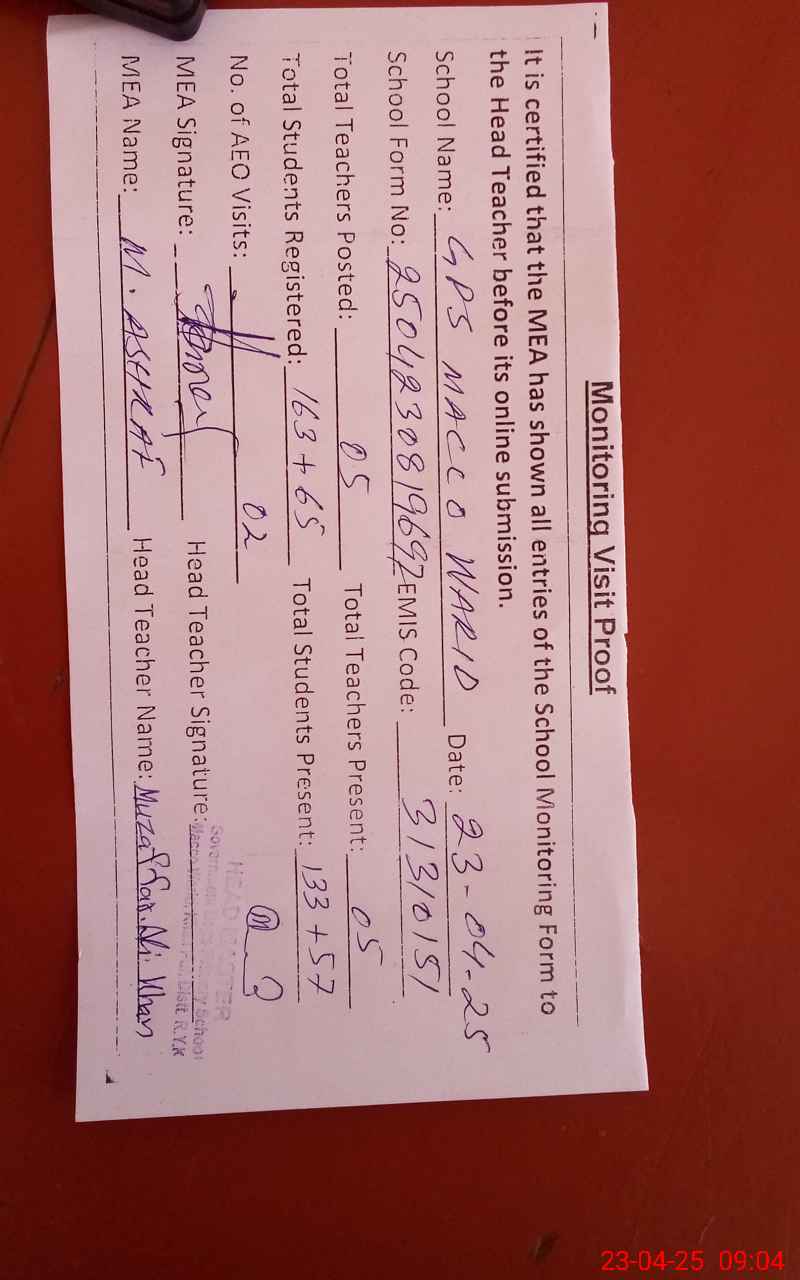 Monitoring Visit Proof
It is certified that the MEA has shown all entries of the School Monitoring Form to
the Head Teacher before its online submission.
School Name: GPS MACCO WARID Date: 23-04-25
School Form No: 2504230819697 EMIS Code: 31310151
Total Teachers Posted: 05 Total Teachers Present: 05
Total Students Registered: 163 + 65 Total Students Present: 133 + 57
No. of AEO Visits: 02
MEA Signature: Head Teacher Signature:
HEAD MASTER
School
Distt. R.Y.K
MEA Name: M. ASHRAF Head Teacher Name: Muzaffar. Ali. Khan
23-04-25 09:04